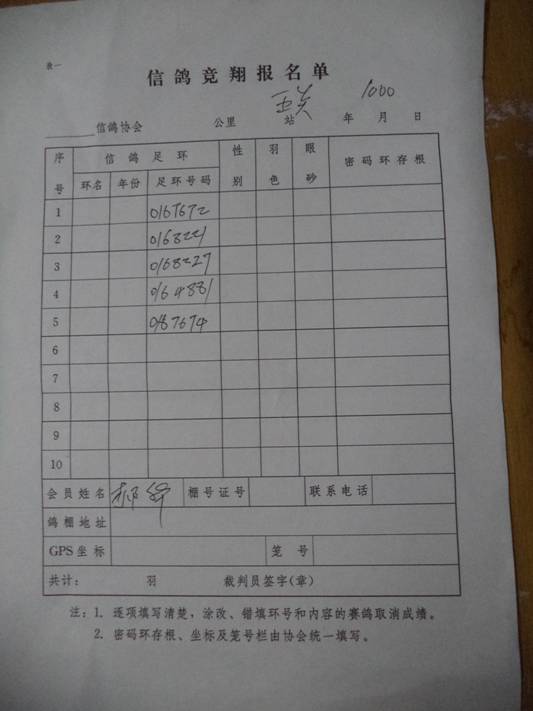 表一
信鸽竞翔报名单
1000
信鸽协会 公里 站 年 月 日
序号 信鸽足环 性别 羽色 眼砂 密码环存根
环名 年份 足环号码
1 0167672
2 0168221
3 0168227
4 0164881
5 0187674
6
7
8
9
10
会员姓名 棚号证号 联系电话
鸽棚地址
GPS坐标 笼号
共计: 羽 裁判员签字(章)
注:1. 逐项填写清楚,涂改、错填环号和内容的赛鸽取消成绩。
2. 密码环存根、坐标及笼号栏由协会统一填写。